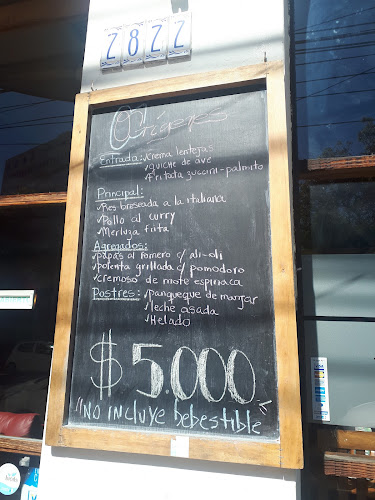 2822
Entrada: ✓crema lentejas
✓quiche de ave
✓fritata zuccini-palmito
Principal:
✓Res breseada a la italiana
✓Pollo al curry
✓Merluza frita
Agregados:
✓papas al romero c/ ali-oli
✓polenta grillada c/ pomodoro
✓cremoso de mote espinaca
Postres: ✓panqueque de manjar
✓leche asada
✓Helado
$5.000
"NO INCLUYE bebestible"